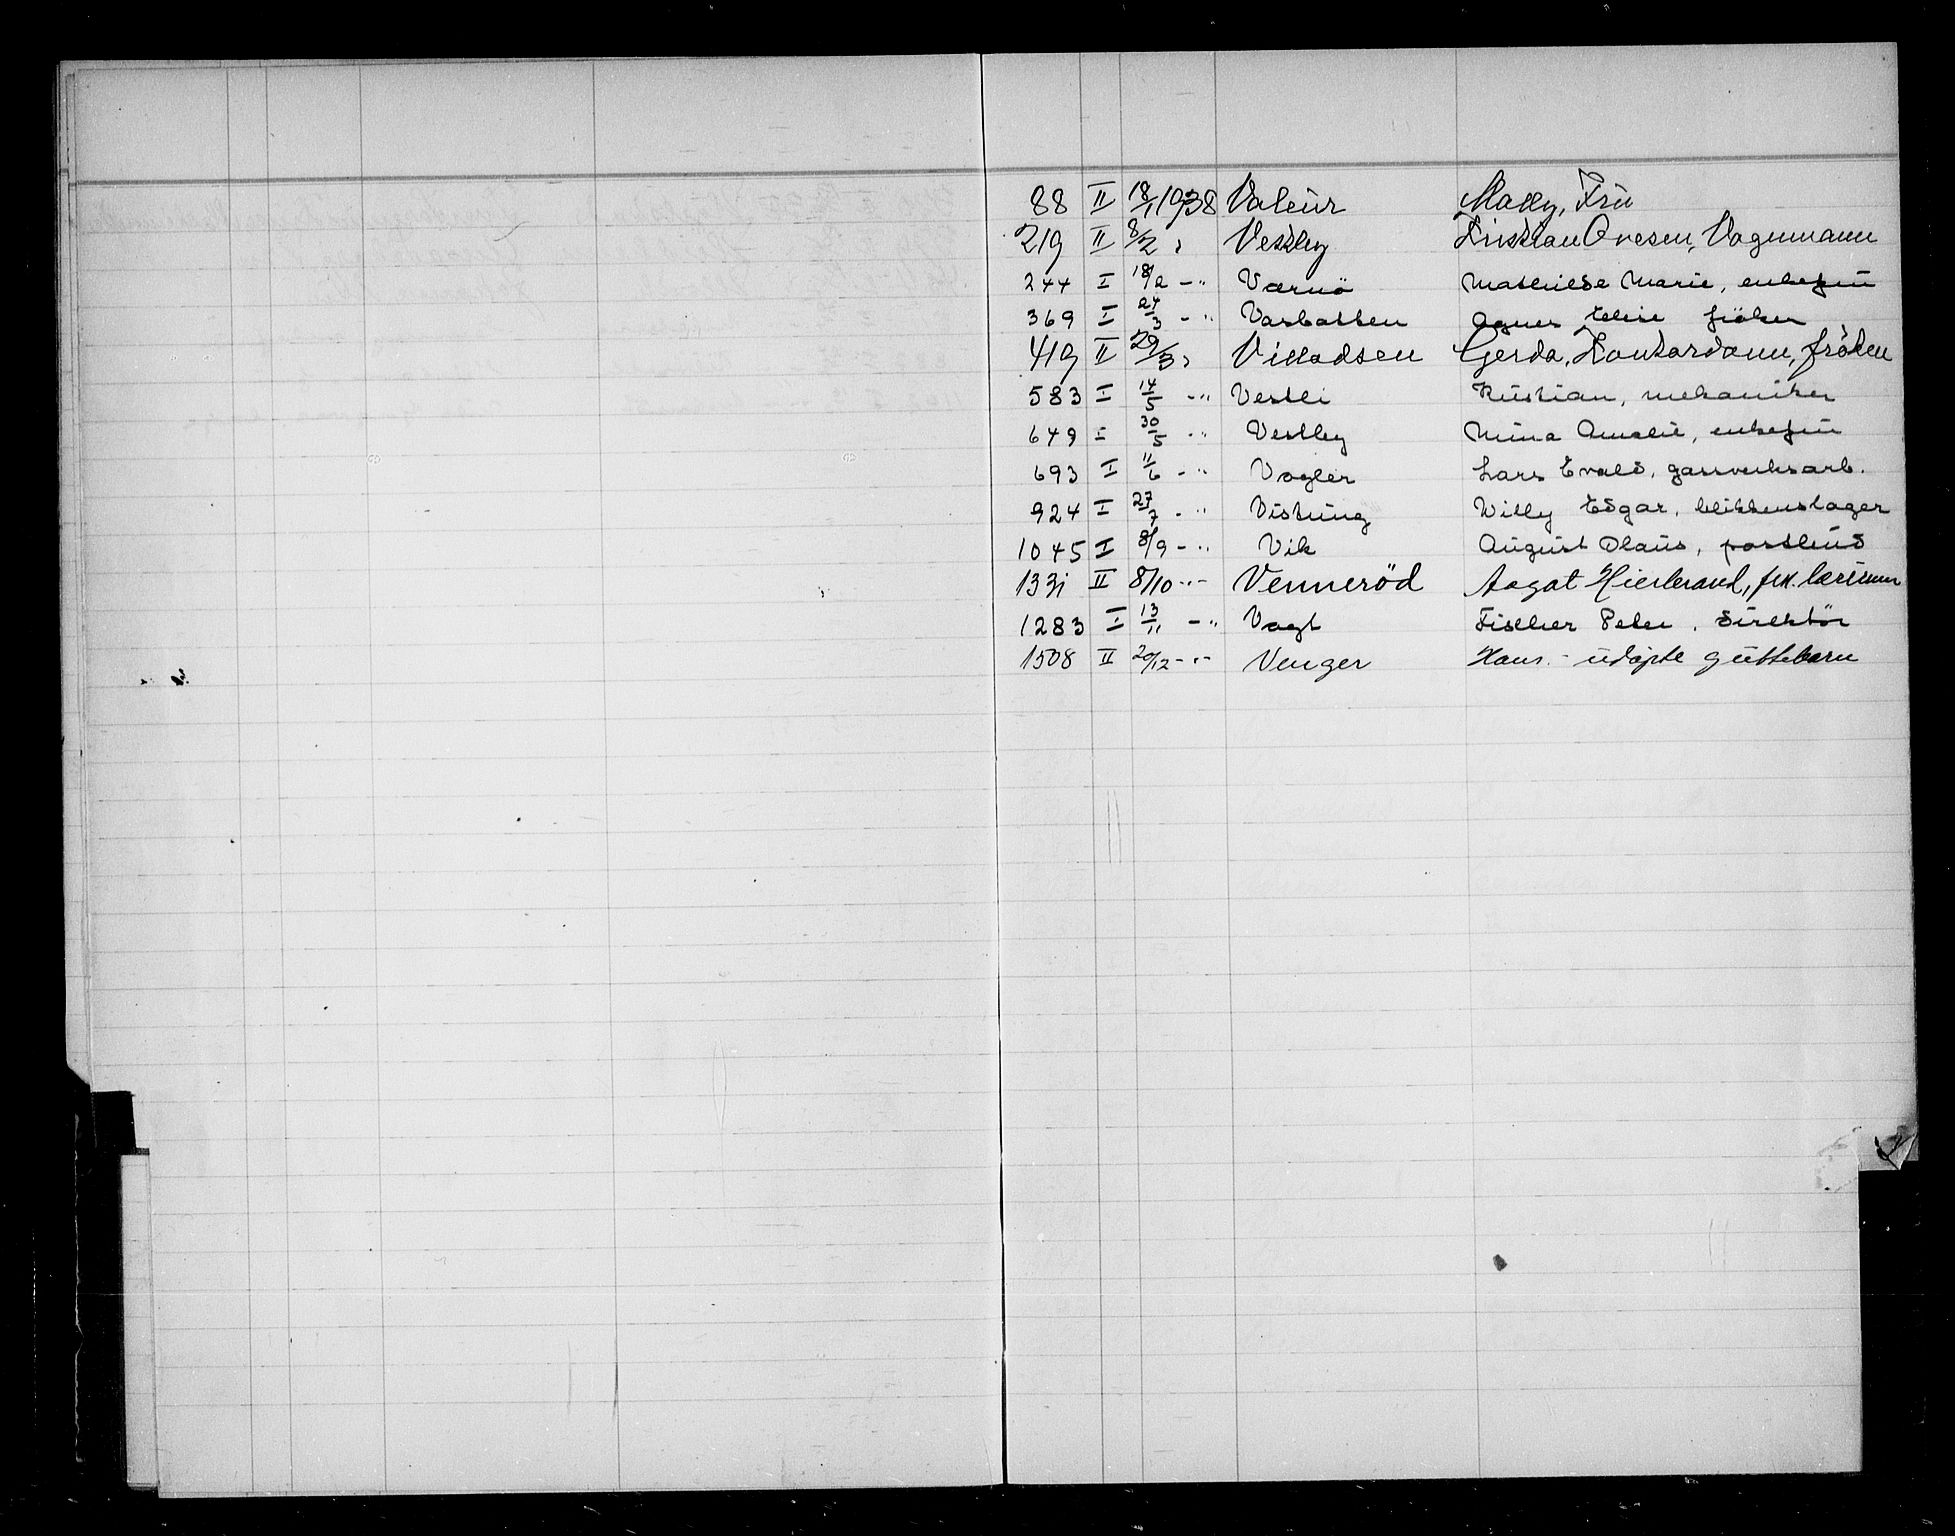 88 II 18/1 1938 Valeur Mally, Fru
219 II 8/2 " Vestley Kristian Ovesen, Vognmann
244 I 18/2 - " Værnö Mathilde Marie, enkefru
369 I 24/3 - " Vasbotten Agnes Elise fröken
419 II 29/3 " Villadsen Gerda, fröken
583 I 14/5 - " Vestli Kristian, mekaniker
649 I 30/5 - " Vestley Mina Amalie, enkefru
693 I 11/6 - " Vogler Lars Evald, gassverksarb.
924 I 27/7 - " Visting Willy Edgar, blikkenslager
1045 I 8/9 - " Vik August Olaus, postbud
1331 II 8/10 - " - Venneröd Aagot Hierbrand, frk. lærerinne
1283 I 13/11 - " Vogt Fischer Peter, direktör
1508 II 20/12 - " - Venger Hans. - udöpte guttebarn